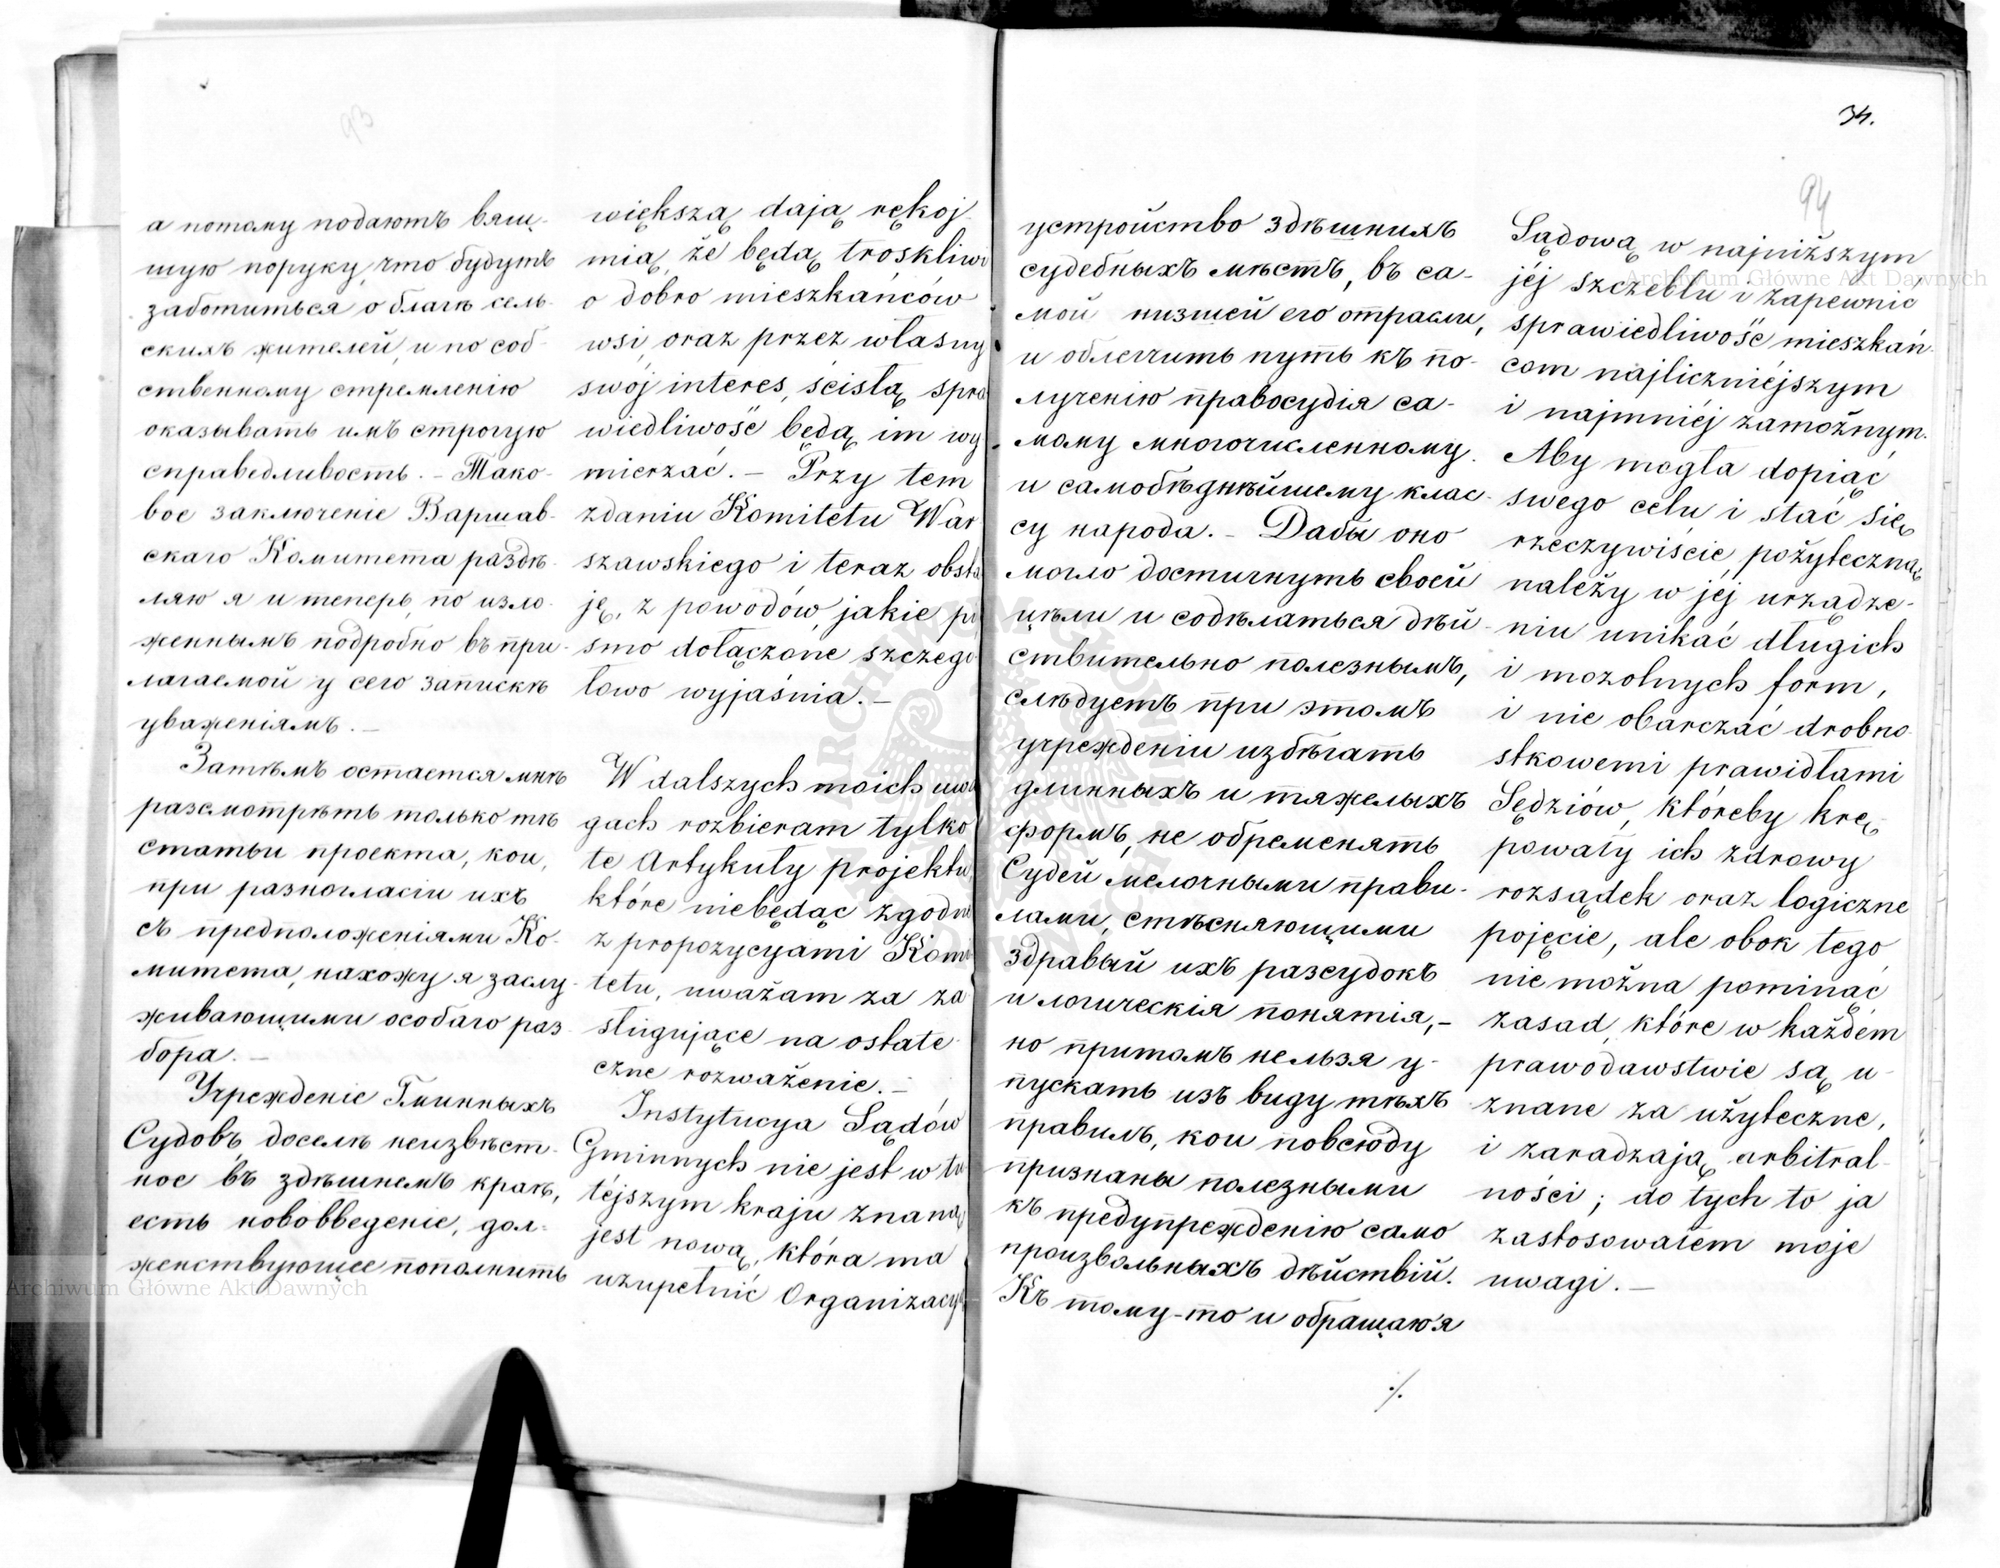 93
а потому подаютъ вящ-
шую поруку, что будутъ
заботиться о благѣ сель-
скихъ жителей, и по соб-
ственному стремленію
оказывать имъ строгую
справедливость. - Тако-
вое заключеніе Варшав-
скаго Комитета раздѣ-
ляю я и теперь, по изло-
женнымъ подробно въ при-
лагаемой у сего запискѣ
уваженіямъ. -
Затѣмъ остается мнѣ
разсмотрѣть только тѣ
статьи проекта, кои,
при разногласіи ихъ
съ предположеніями Ко-
митета, нахожу я заслу-
живающими особаго раз
бора. -
Учрежденіе Гминныхъ
Судовъ, доселѣ неизвѣст-
ное въ здѣшнемъ краѣ,
есть нововведеніе, дол-
женствующее пополнить
większą dają rękoj-
mią, że będą troskliwi
o dobro mieszkańców
wsi, oraz przez własny
swój interes, ścisłą spra
wiedliwość będą im wy
mierzać. - Przy tem
zdaniu Komitetu War
szawskiego i teraz obsta
ję, z powodów, jakie pi
smo dołączone szczegó
łowo wyjaśnia. -
W dalszych moich uwa
gach rozbieram tylko
te Artykuły projektu,
które niebędąc zgodne
z propozycyami Komi
tetu, uważam za za
sługujące na ostate
czne rozważenie. -
Instytucya Sądów
Gminnych nie jest w tu
tejszym kraju znaną,
jest nową, która ma
uzupełnić Organizacyę
34.
94
устройство здѣшнихъ
судебныхъ мѣстъ, въ са-
мой низшей его отрасли,
и облегчить путь къ по-
лученію правосудія са-
мому многочисленному
и самобѣднѣйшему клас-
су народа. - Дабы оно
могло достигнуть своей
цѣли и содѣлаться дѣй-
ствительно полезнымъ,
слѣдуетъ при этомъ
учрежденіи избѣгать
длинныхъ и тяжелыхъ
формъ, не обременять
Судей мелочными прави-
лами, стѣсняющими
здравый ихъ разсудокъ
и логическія понятія, -
но притомъ нельзя у-
пускать изъ виду тѣхъ
правилъ, кои повсюду
признаны полезными
къ предупрежденію само
произвольныхъ дѣйствій.
Къ тому-то и обращаю я
Sądową w najniższym
jéj szczeblu i zapewnić
sprawiedliwość mieszkań-
com najliczniéjszym
i najmniéj zamożnym.
Aby mogła dopiąć
swego celu i stać się
rzeczywiście pożyteczną
należy w jej urządze-
niu unikać długich
i mozolnych form,
i nie obarczać drobno
stkowemi prawidłami
Sędziów, któreby krę-
powały ich zdrowy
rozsądek oraz logiczne
pojęcie, ale obok tego
nie można pominąć
zasad, które w każdém
prawodawstwie są u-
znane za użyteczne,
i zaradzają arbitral-
ności; do tych to ja
zastosowałem moje
uwagi. -
./.
Archiwum Główne Akt Dawnych
Archiwum Główne Akt Dawnych